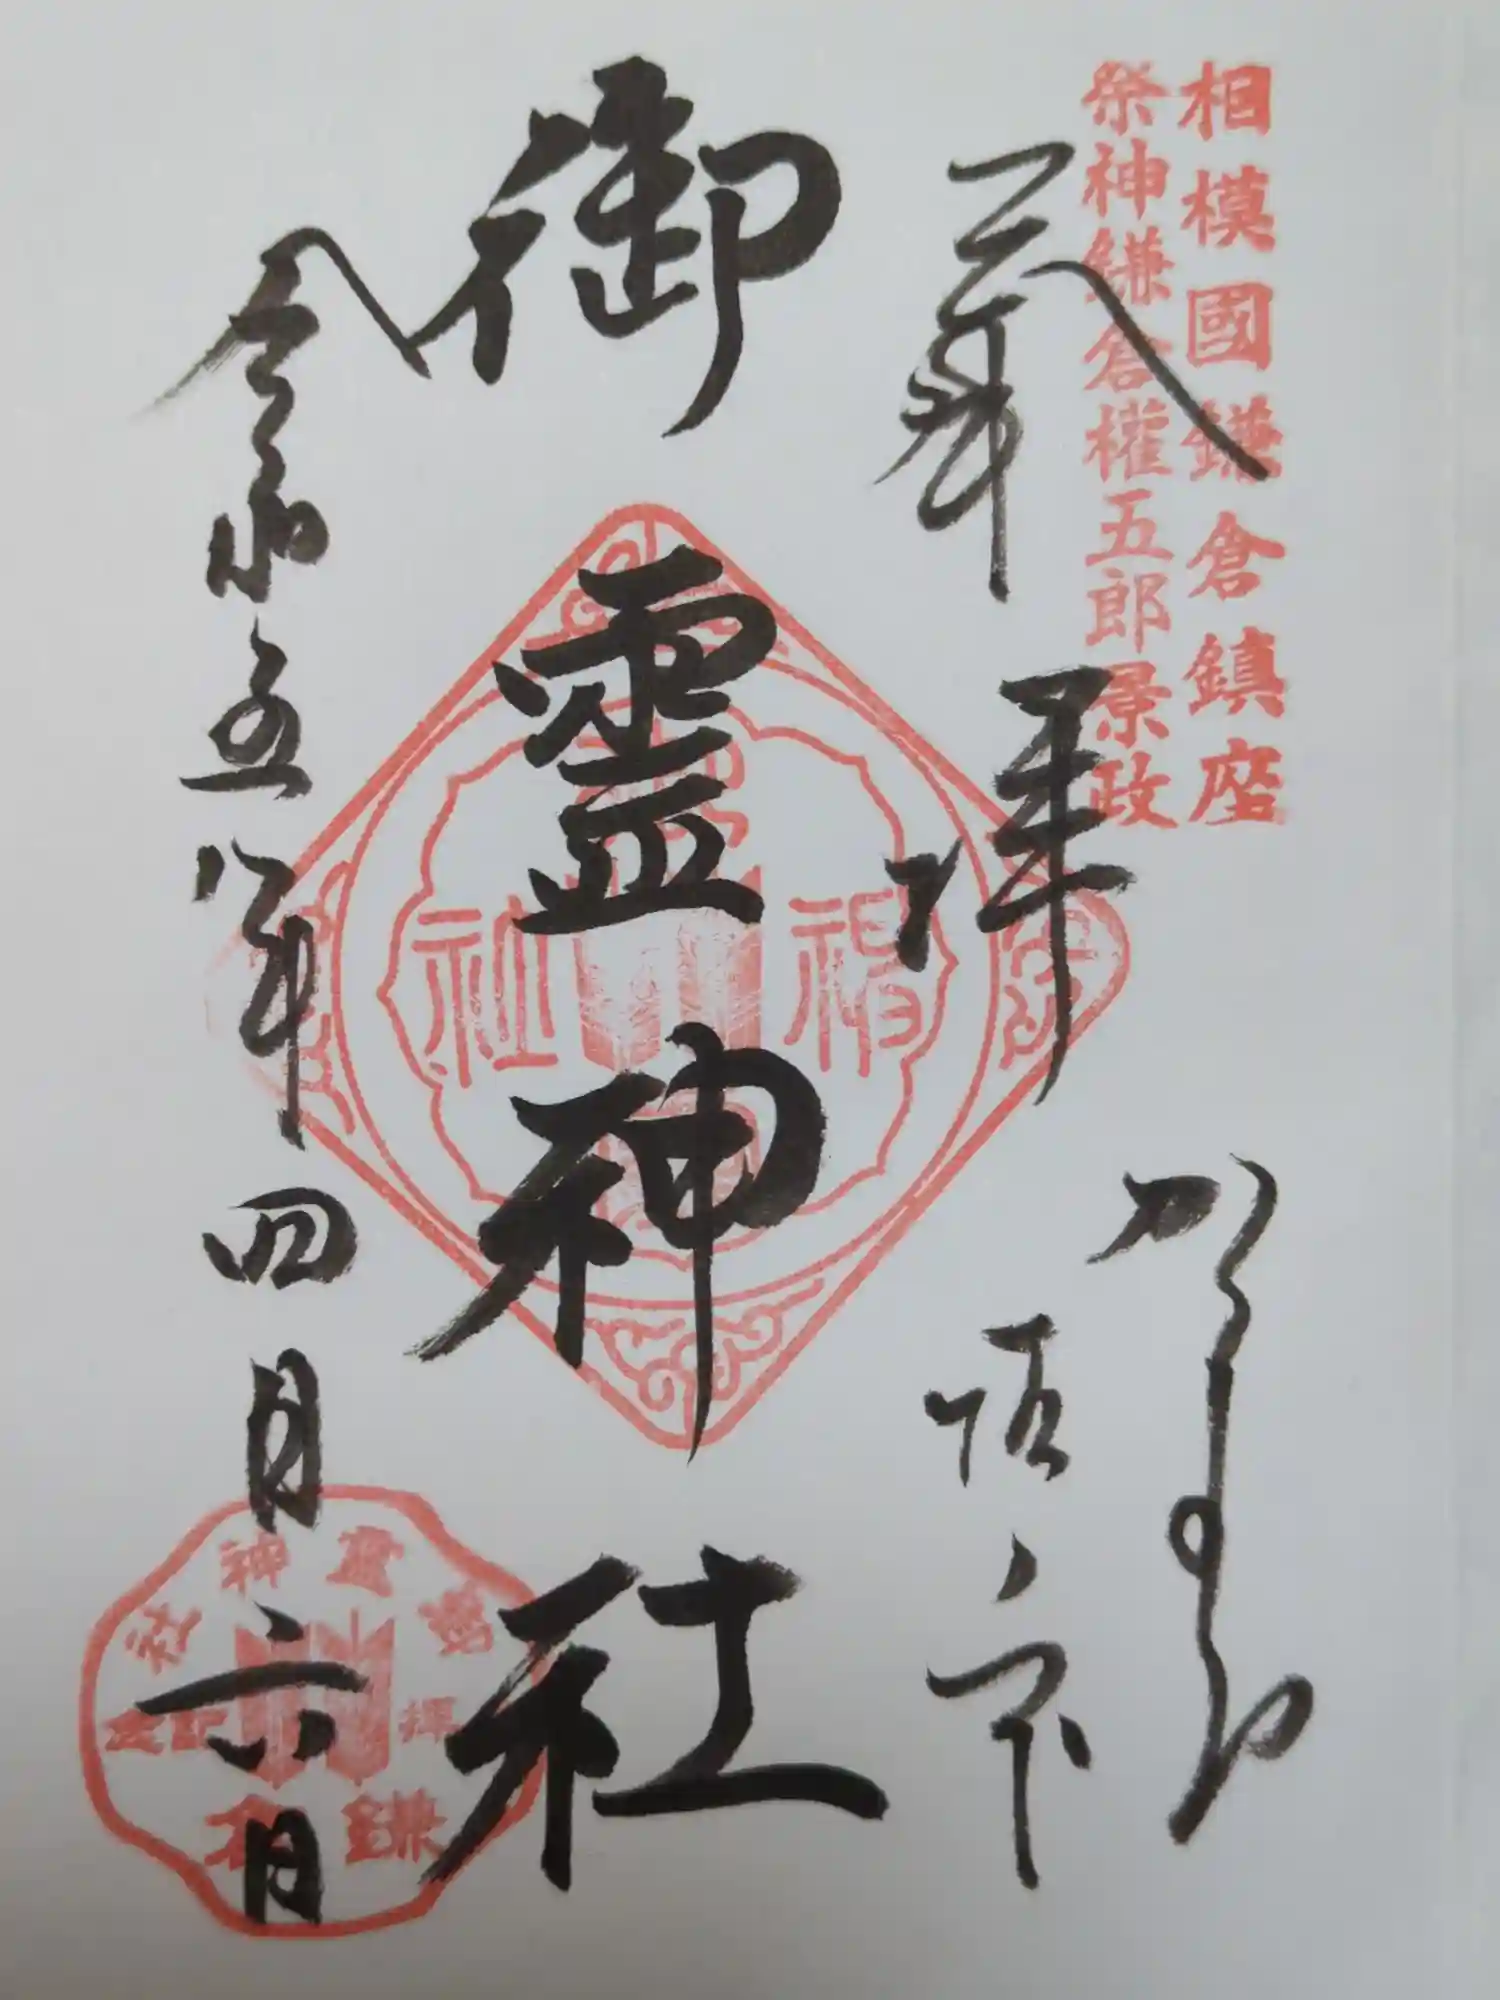 相模國鎌倉鎮座
祭神鎌倉權五郎景政
奉拝
かまくら
坂ノ下
御霊神社
令和五年四月六日
御霊神社
鎌倉